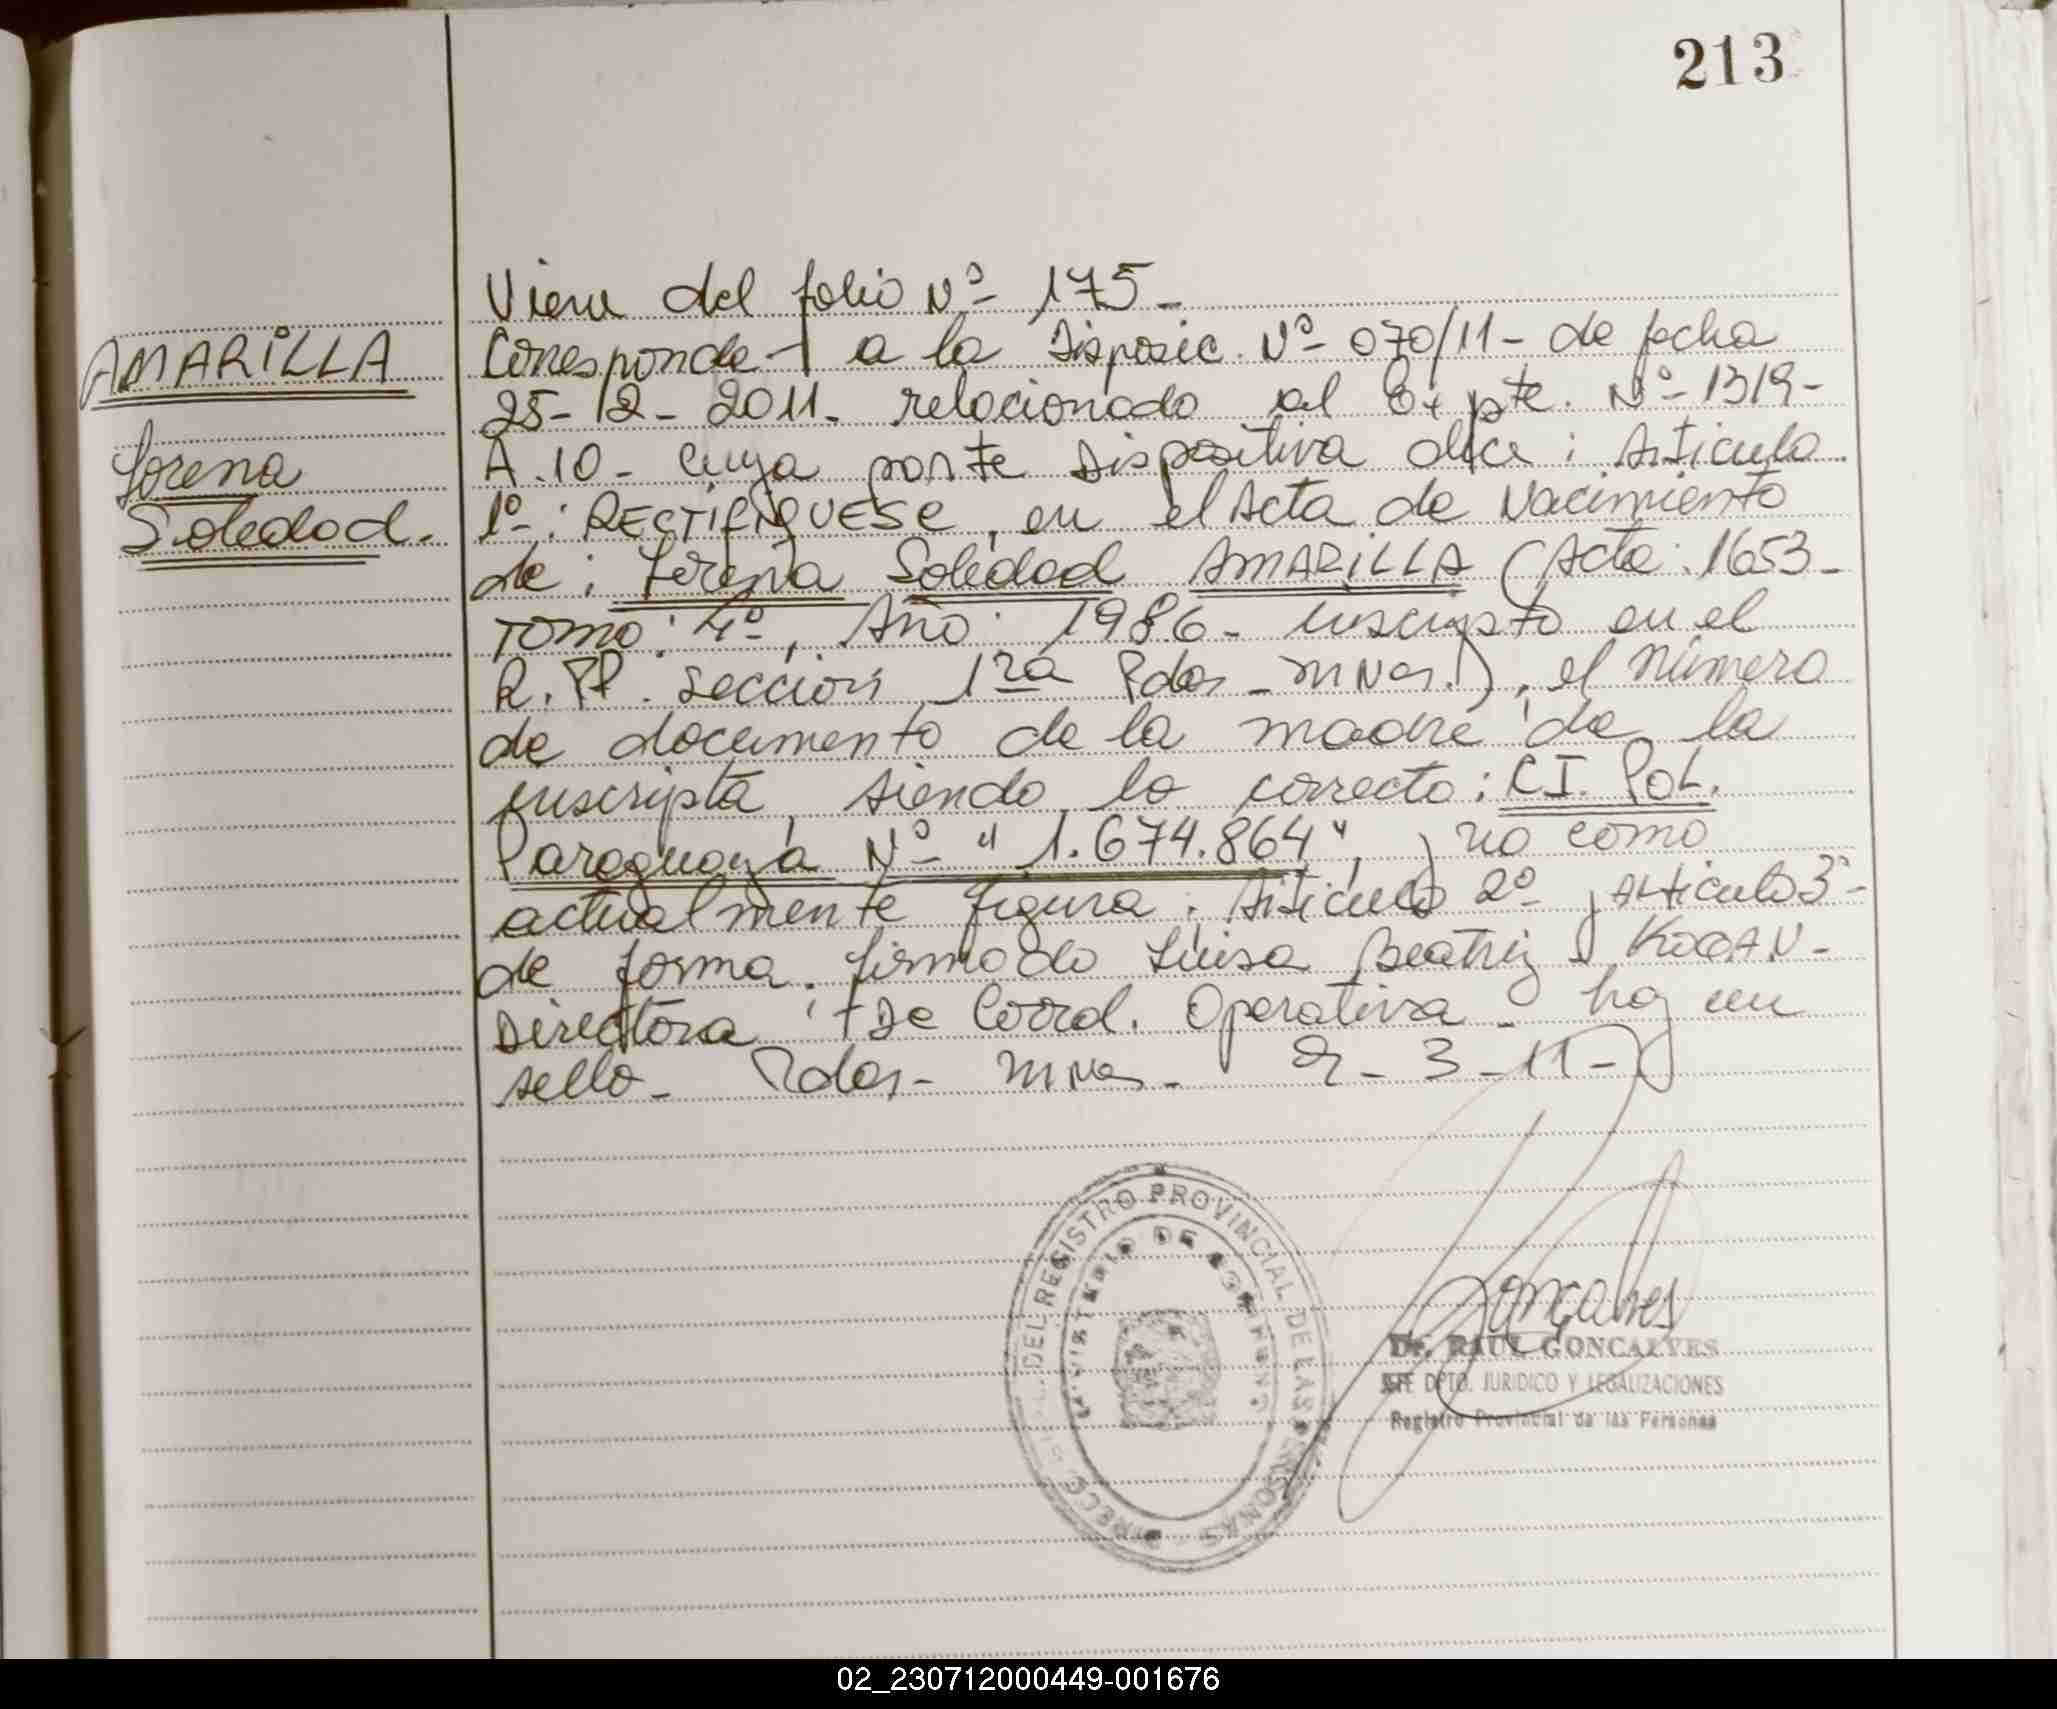 213
AMARILLA
Lorena
Soledad.
Viene del folio Nº 175-
Corresponde a la Disposic. Nº 070/11- de fecha
25-2-2011- relacionado al Expte. Nº-1319-
A.10- cuya parte dispositiva dice: Articulo
1º-: RECTIFIQUESE, en el Acta de Nacimiento
de: Lorena Soledad AMARILLA (Acta: 1653-
Tomo: 4º-, Año: 1986- inscripto en el
R.PP. Sección 1ra Pdas-Mnes.), el número
de documento de la madre de la
inscripta, siendo lo correcto: CI. Pol.
Paraguaya Nº- "1.674.864", y no como
actualmente figura. Articulo 2º y Articulo 3º-
de forma. firmado Luisa Beatriz KOGAN-
Directora De Coord. Operativa- hay un
sello- Pdas- Mnes- 2-3-11-
DEL REGISTRO PROVINCIAL DE LAS PERSONAS
MINISTERIO DE GOBIERNO
Goncalves
Dr. RAUL GONCALVES
JEFE DPTO. JURIDICO Y LEGALIZACIONES
Registro Provincial de las Personas
02_230712000449-001676